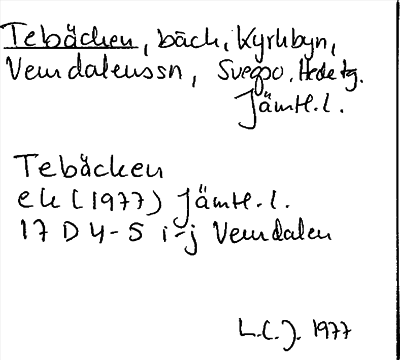 Tebäcken, bäck, Kyrkbyn,
Vemdalenssn, Svegpo, Hede tg.
Jämtl.l.
Tebäcken
ek (1977) Jämtl.l.
17 D 4-5 i-j Vemdalen
L.C.J. 1977